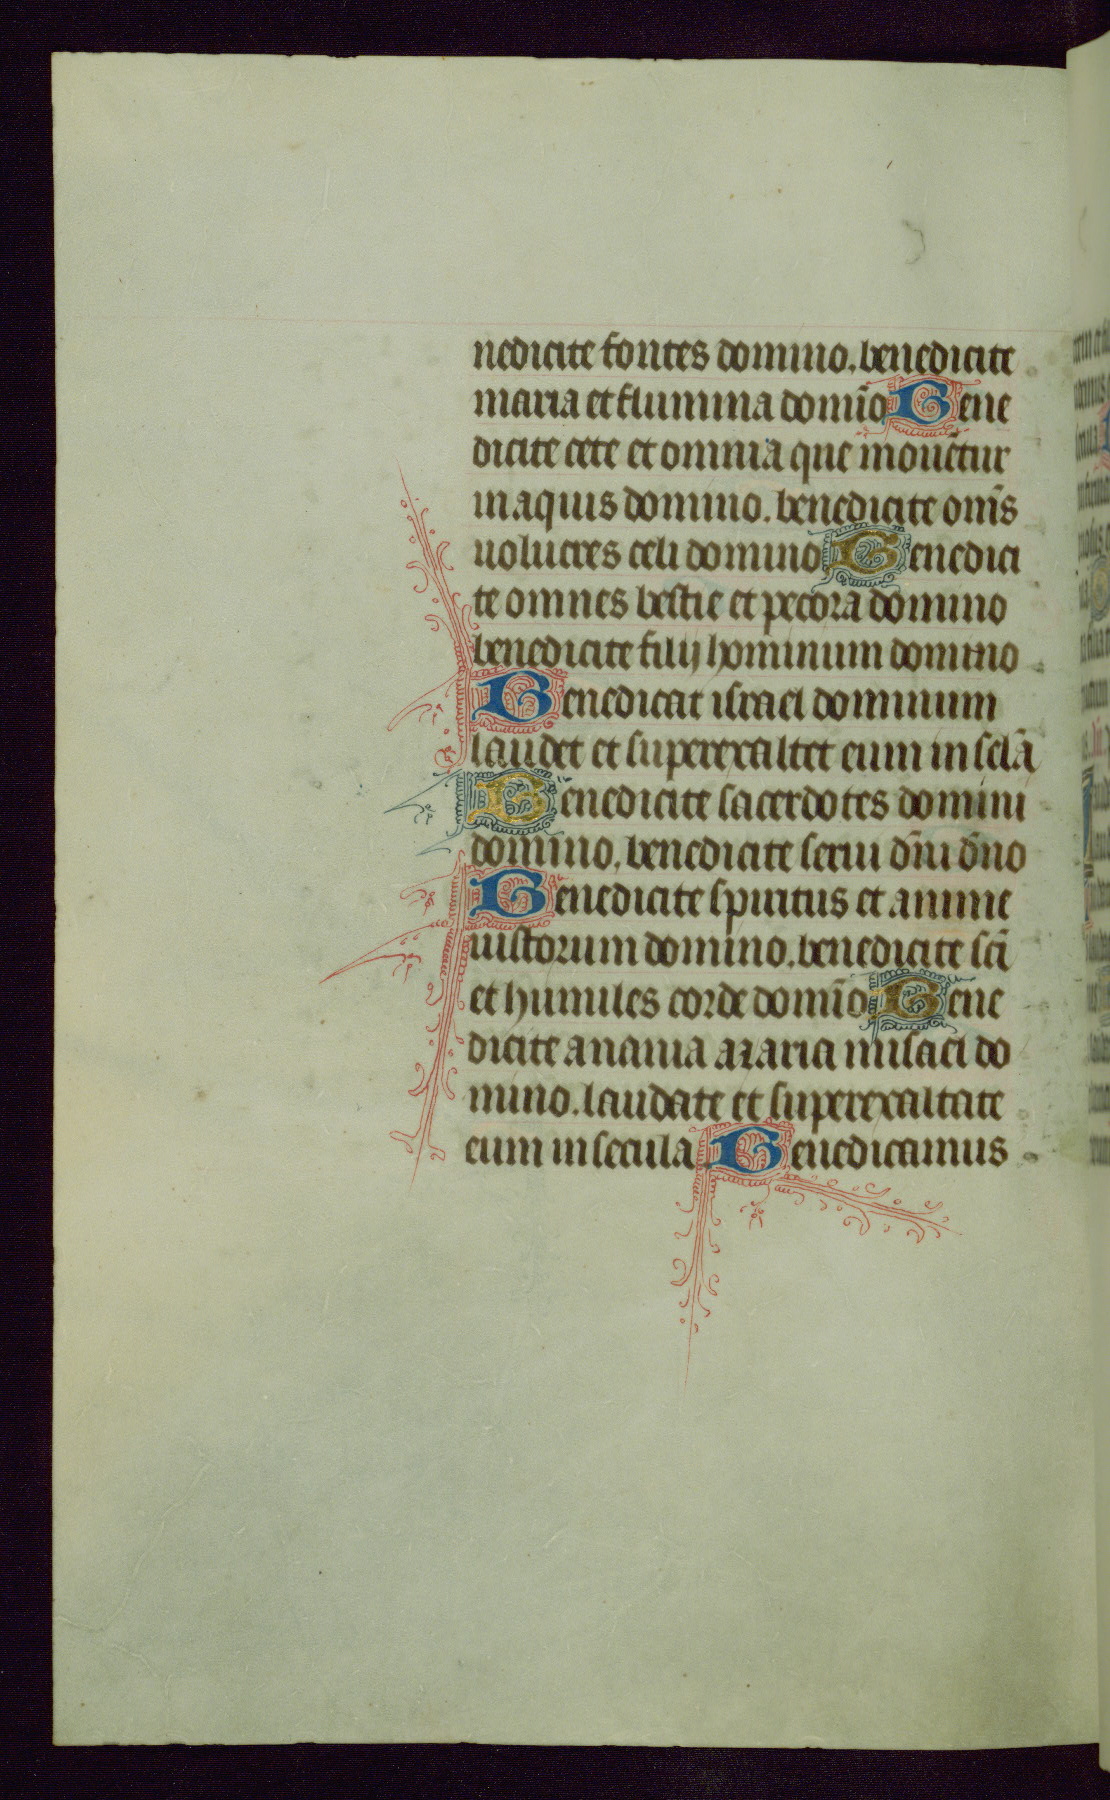 nedicite fontes domino. benedicite
maria et flumina domīo Bene
dicite cete et omnia que mouētur
in aquis domino. benedicite om̄s
uolucres celi domino Benedici
te omnes bestie et pecora domino
benedicite filij hominum domino
Benedicat israel dominum
laudet et superexaltet eum in sclā
Benedicite sacerdotes domini
domino. benedicite serui dn̄i dn̄o
Benedicite spiritus et anime
iustorum domino. benedicite scī
et humiles corde domīo Bene
dicite anania azaria misael do
mino. laudate et superexaltate
eum in secula Benedicamus